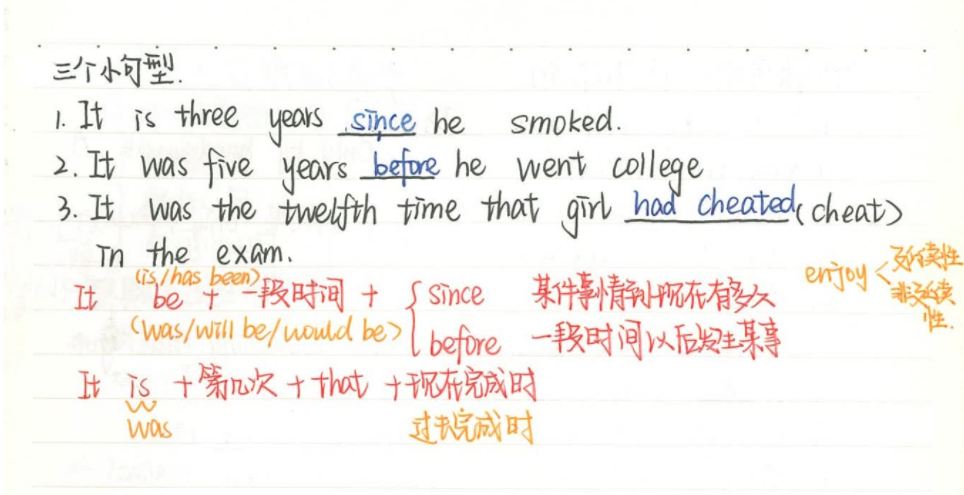 三个小句型.
1. It is three years since he smoked.
2. It was five years before he went college
3. It was the twelfth time that girl had cheated (cheat)
in the exam.
(is/has been)
It be + 一段时间 + { since 某件事情到现在有多久
(was/will be/would be) before 一段时间以后发生某事
enjoy < 延续性
非延续性.
It is + 第几次 + that + 现在完成时
was 过去完成时